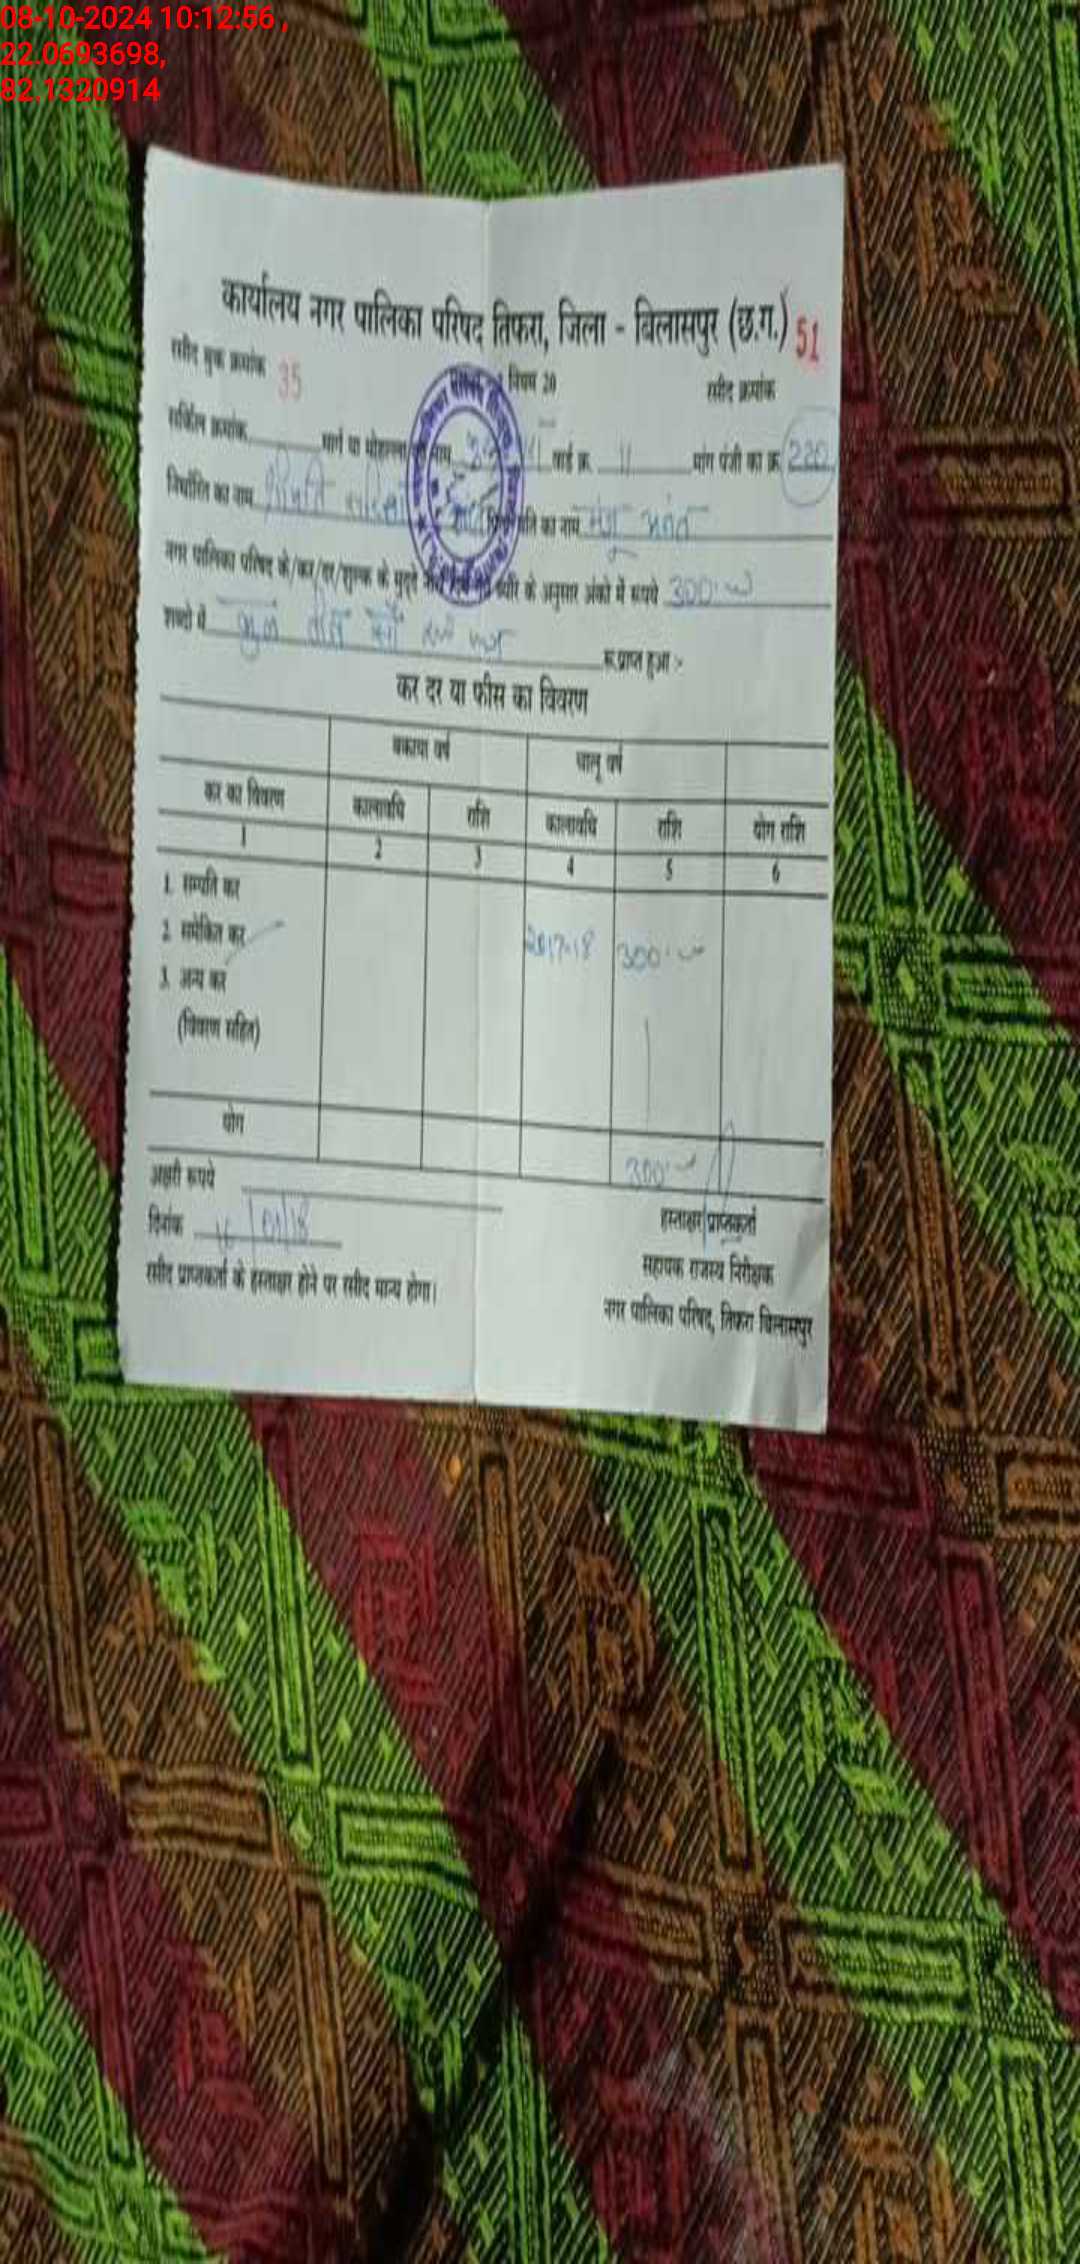 08-10-2024 10:12:56 ,
22.0693698,
82.1320914
कार्यालय नगर पालिका परिषद तिफरा, जिला - बिलासपुर (छ.ग.) 51
रसीद बुक क्रमांक 35 नियम 20 रसीद क्रमांक
सर्किल क्रमांक मार्ग या मोहल्ला नाम वार्ड क्र. 11 मांग पंजी का क्र. 220
निर्धारिती का नाम श्रीमति पति का नाम
नगर पालिका परिषद के/कर/दर/शुल्क के मुद्दे के अनुसार अंको में रूपये 300
शब्दो में तीन सौ रू.प्राप्त हुआ :-
कर दर या फीस का विवरण
बकाया वर्ष चालू वर्ष
कर का विवरण कालावधि राशि कालावधि राशि योग राशि
1 2 3 4 5 6
1. सम्पति कर
2. समेकित कर 2017-18 300
3. अन्य कर
(विवरण सहित)
योग 300
अक्षरी रूपये
दिनांक
हस्ताक्षर प्राप्तकर्ता
सहायक राजस्व निरीक्षक
रसीद प्राप्तकर्ता के हस्ताक्षर होने पर रसीद मान्य होगा।
नगर पालिका परिषद, तिफरा बिलासपुर